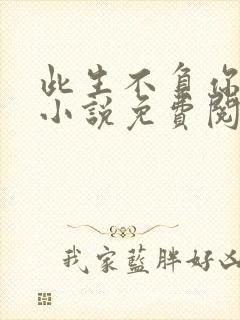 此生不負你
小說免費閱
我家藍胖好凶